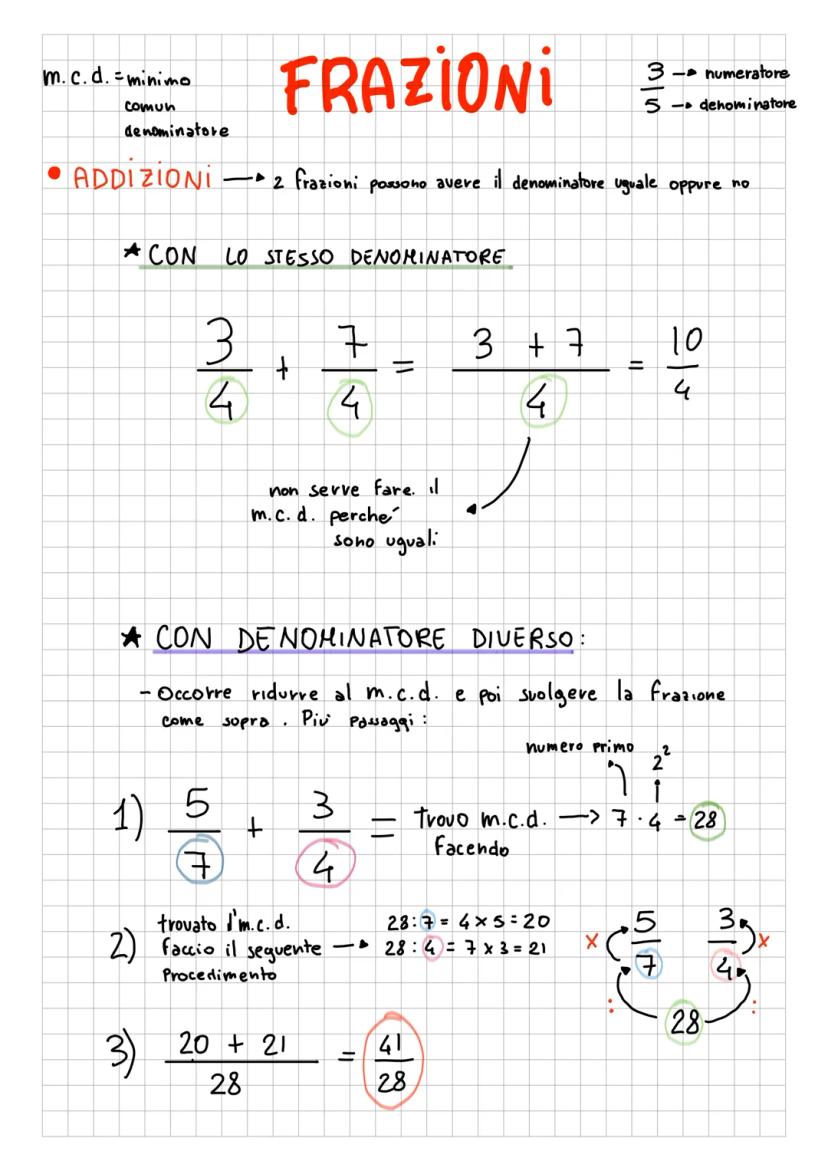 FRAZIONI
m.c.d. = minimo
comun
denominatore
3 → numeratore
5 → denominatore
• ADDIZIONI → 2 frazioni possono avere il denominatore uguale oppure no
★ CON LO STESSO DENOMINATORE
3/4 + 7/4 = 3 + 7/4 = 10/4
non serve fare il
m.c.d. perché
sono uguali
★ CON DENOMINATORE DIVERSO:
- Occorre ridurre al m.c.d. e poi svolgere la frazione
come sopra. Più passaggi:
numero primo 2²
1) 5/7 + 3/4 = trovo m.c.d. → 7 · 4 = 28
facendo
2) trovato l'm.c.d.
faccio il seguente →
procedimento
28 : 7 = 4 x 5 = 20
28 : 4 = 7 x 3 = 21
x 5/7 3/4 x
: 28 :
3) 20 + 21/28 = 41/28